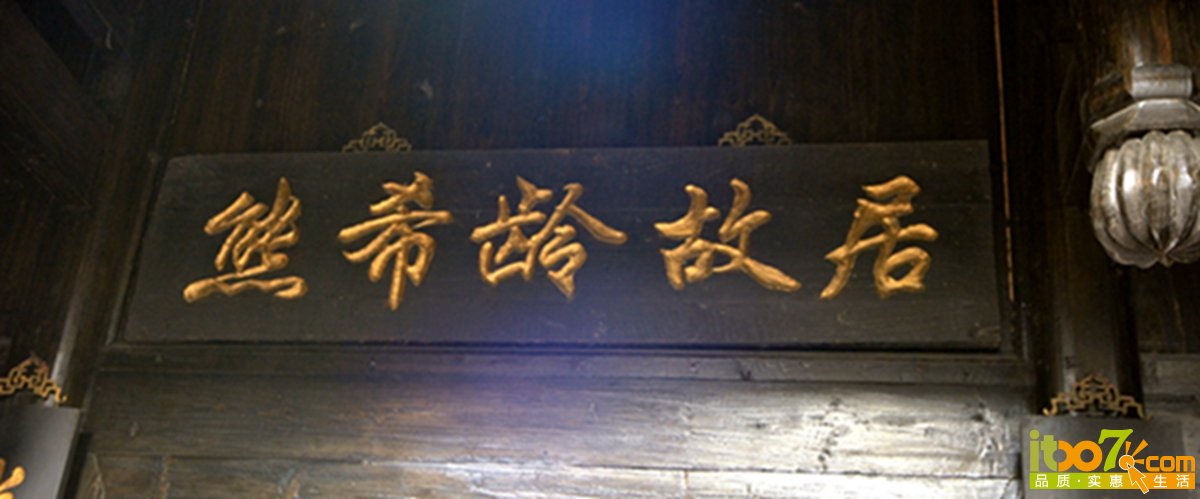 熊希龄故居
itbo7.com
品质·实惠 生活